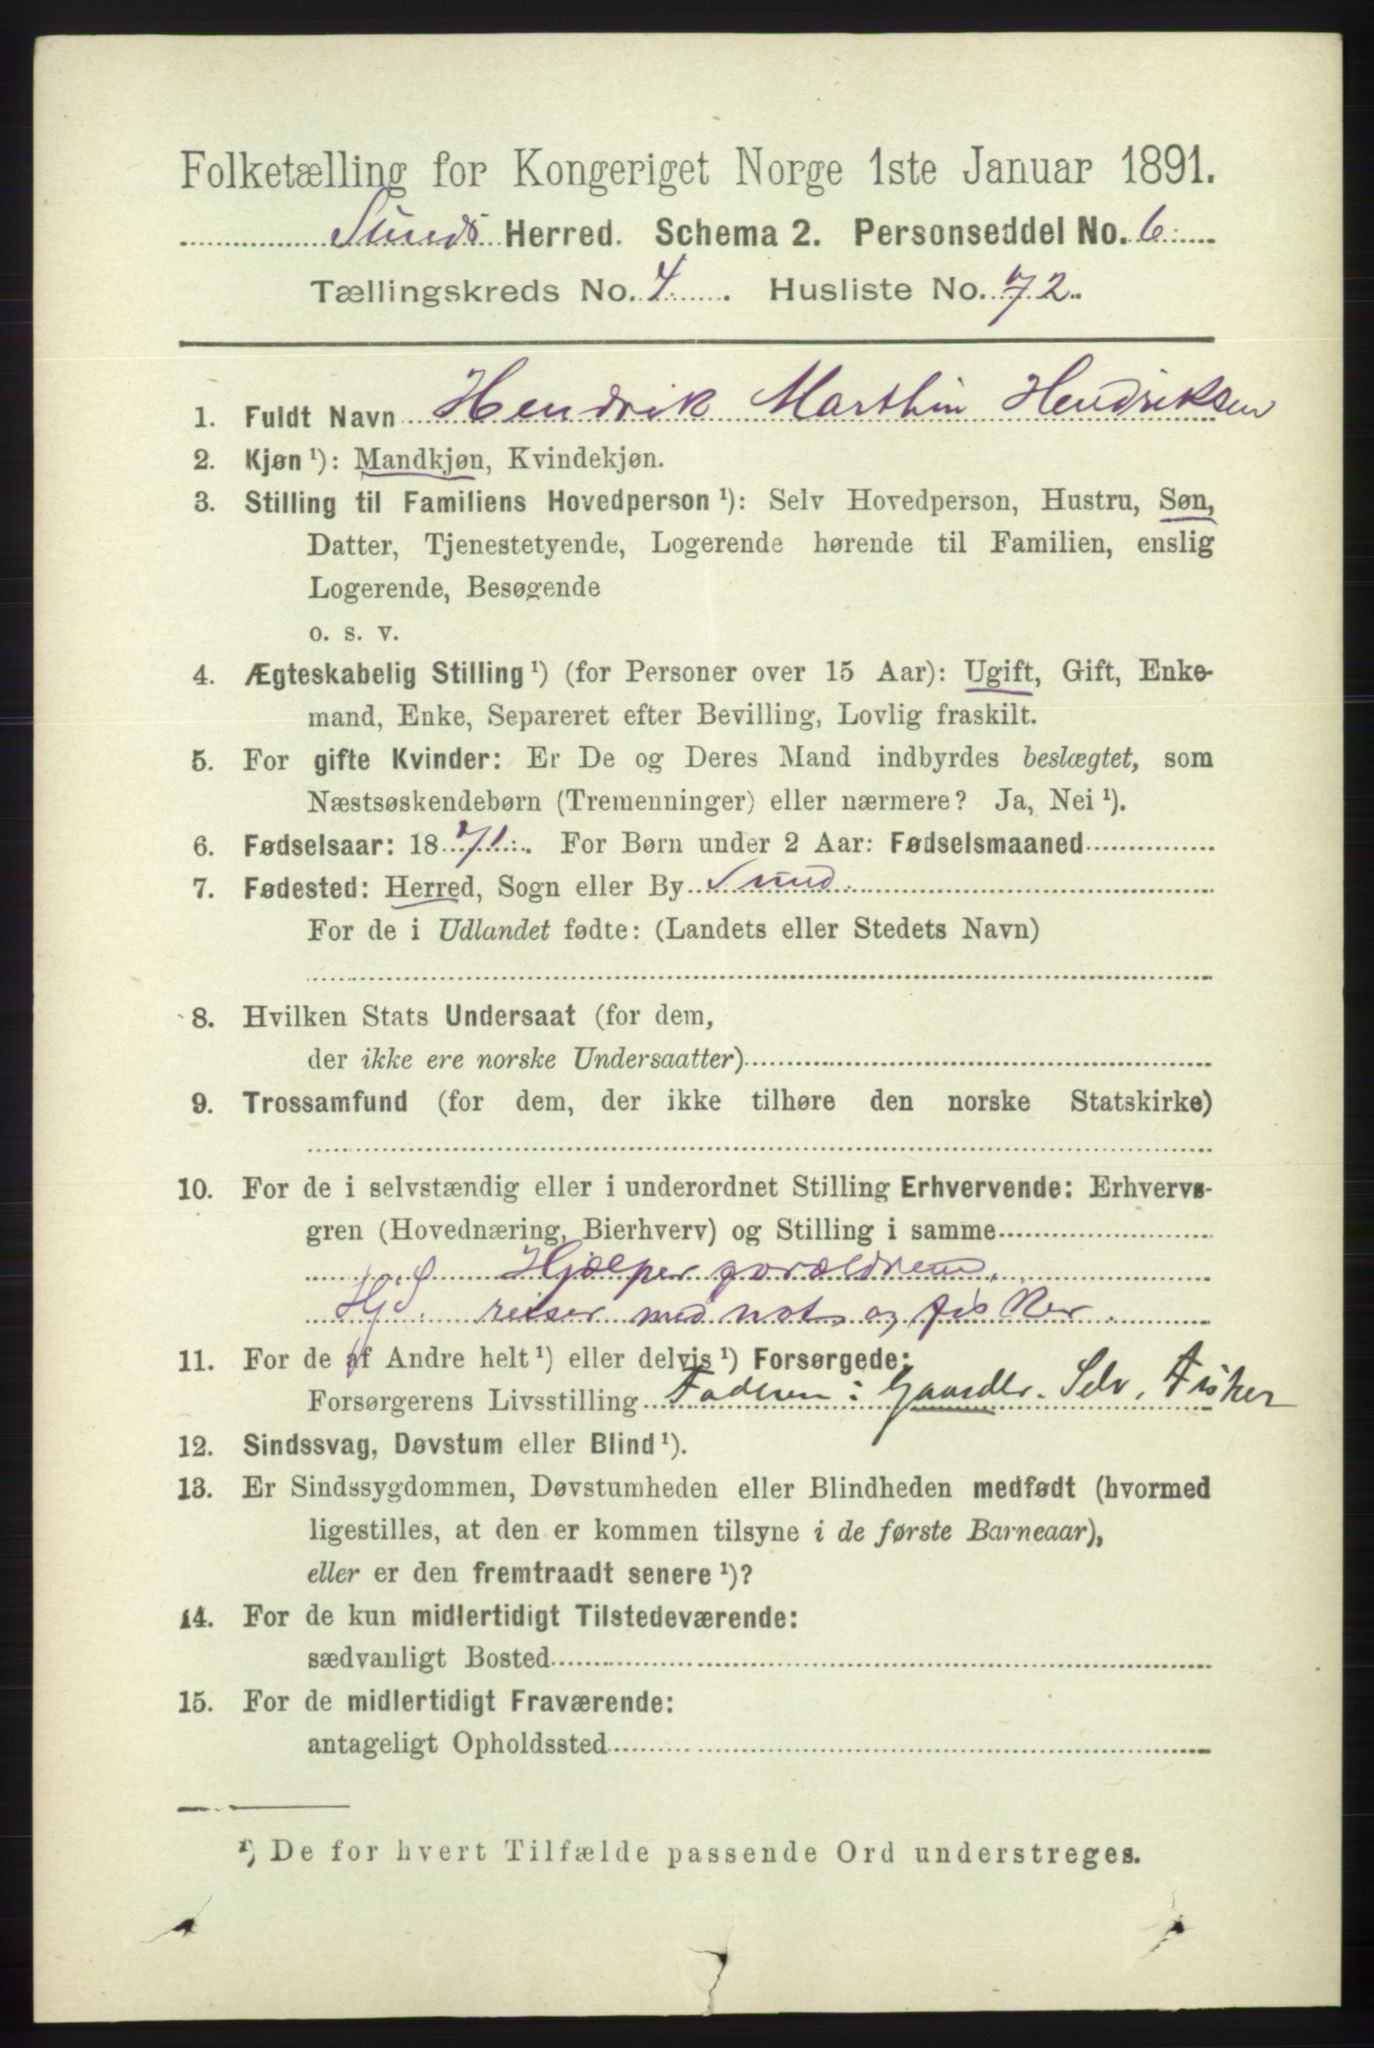 Folketælling for Kongeriget Norge 1ste Januar 1891.
Sunds Herred. Schema 2. Personseddel No. 6
Tællingskreds No. 4. Husliste No. 72.
1. Fuldt Navn Hendrik Marthin Hendriksen
2. Kjøn ¹): Mandkjøn, Kvindekjøn.
3. Stilling til Familiens Hovedperson ¹): Selv Hovedperson, Hustru, Søn,
Datter, Tjenestetyende, Logerende hørende til Familien, enslig
Logerende, Besøgende
o. s. v.
4. Ægteskabelig Stilling ¹) (for Personer over 15 Aar): Ugift, Gift, Enke-
mand, Enke, Separeret efter Bevilling, Lovlig fraskilt.
5. For gifte Kvinder: Er De og Deres Mand indbyrdes beslægtet, som
Næstsøskendebørn (Tremenninger) eller nærmere? Ja, Nei ¹).
6. Fødselsaar: 1871. For Børn under 2 Aar: Fødselsmaaned
7. Fødested: Herred, Sogn eller By Sund.
For de i Udlandet fødte: (Landets eller Stedets Navn)
8. Hvilken Stats Undersaat (for dem,
der ikke ere norske Undersaatter)
9. Trossamfund (for dem, der ikke tilhøre den norske Statskirke)
10. For de i selvstændig eller i underordnet Stilling Erhvervende: Erhvervs-
gren (Hovednæring, Bierhverv) og Stilling i samme
Hjælper forældrene,
reiser med not, og fisker.
11. For de af Andre helt ¹) eller delvis ¹) Forsørgede:
Forsørgerens Livsstilling Faderen: Gaardbr. Selv, Fisker
12. Sindssvag, Døvstum eller Blind ¹).
13. Er Sindssygdommen, Døvstumheden eller Blindheden medfødt (hvormed
ligestilles, at den er kommen tilsyne i de første Barneaar),
eller er den fremtraadt senere ¹)?
14. For de kun midlertidigt Tilstedeværende:
sædvanligt Bosted
15. For de midlertidigt Fraværende:
antageligt Opholdssted
¹) De for hvert Tilfælde passende Ord understreges.